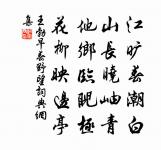 江旷春潮白
山长晓岫青
他乡临眺极
花柳映边亭
王勃早春野望词典网
集